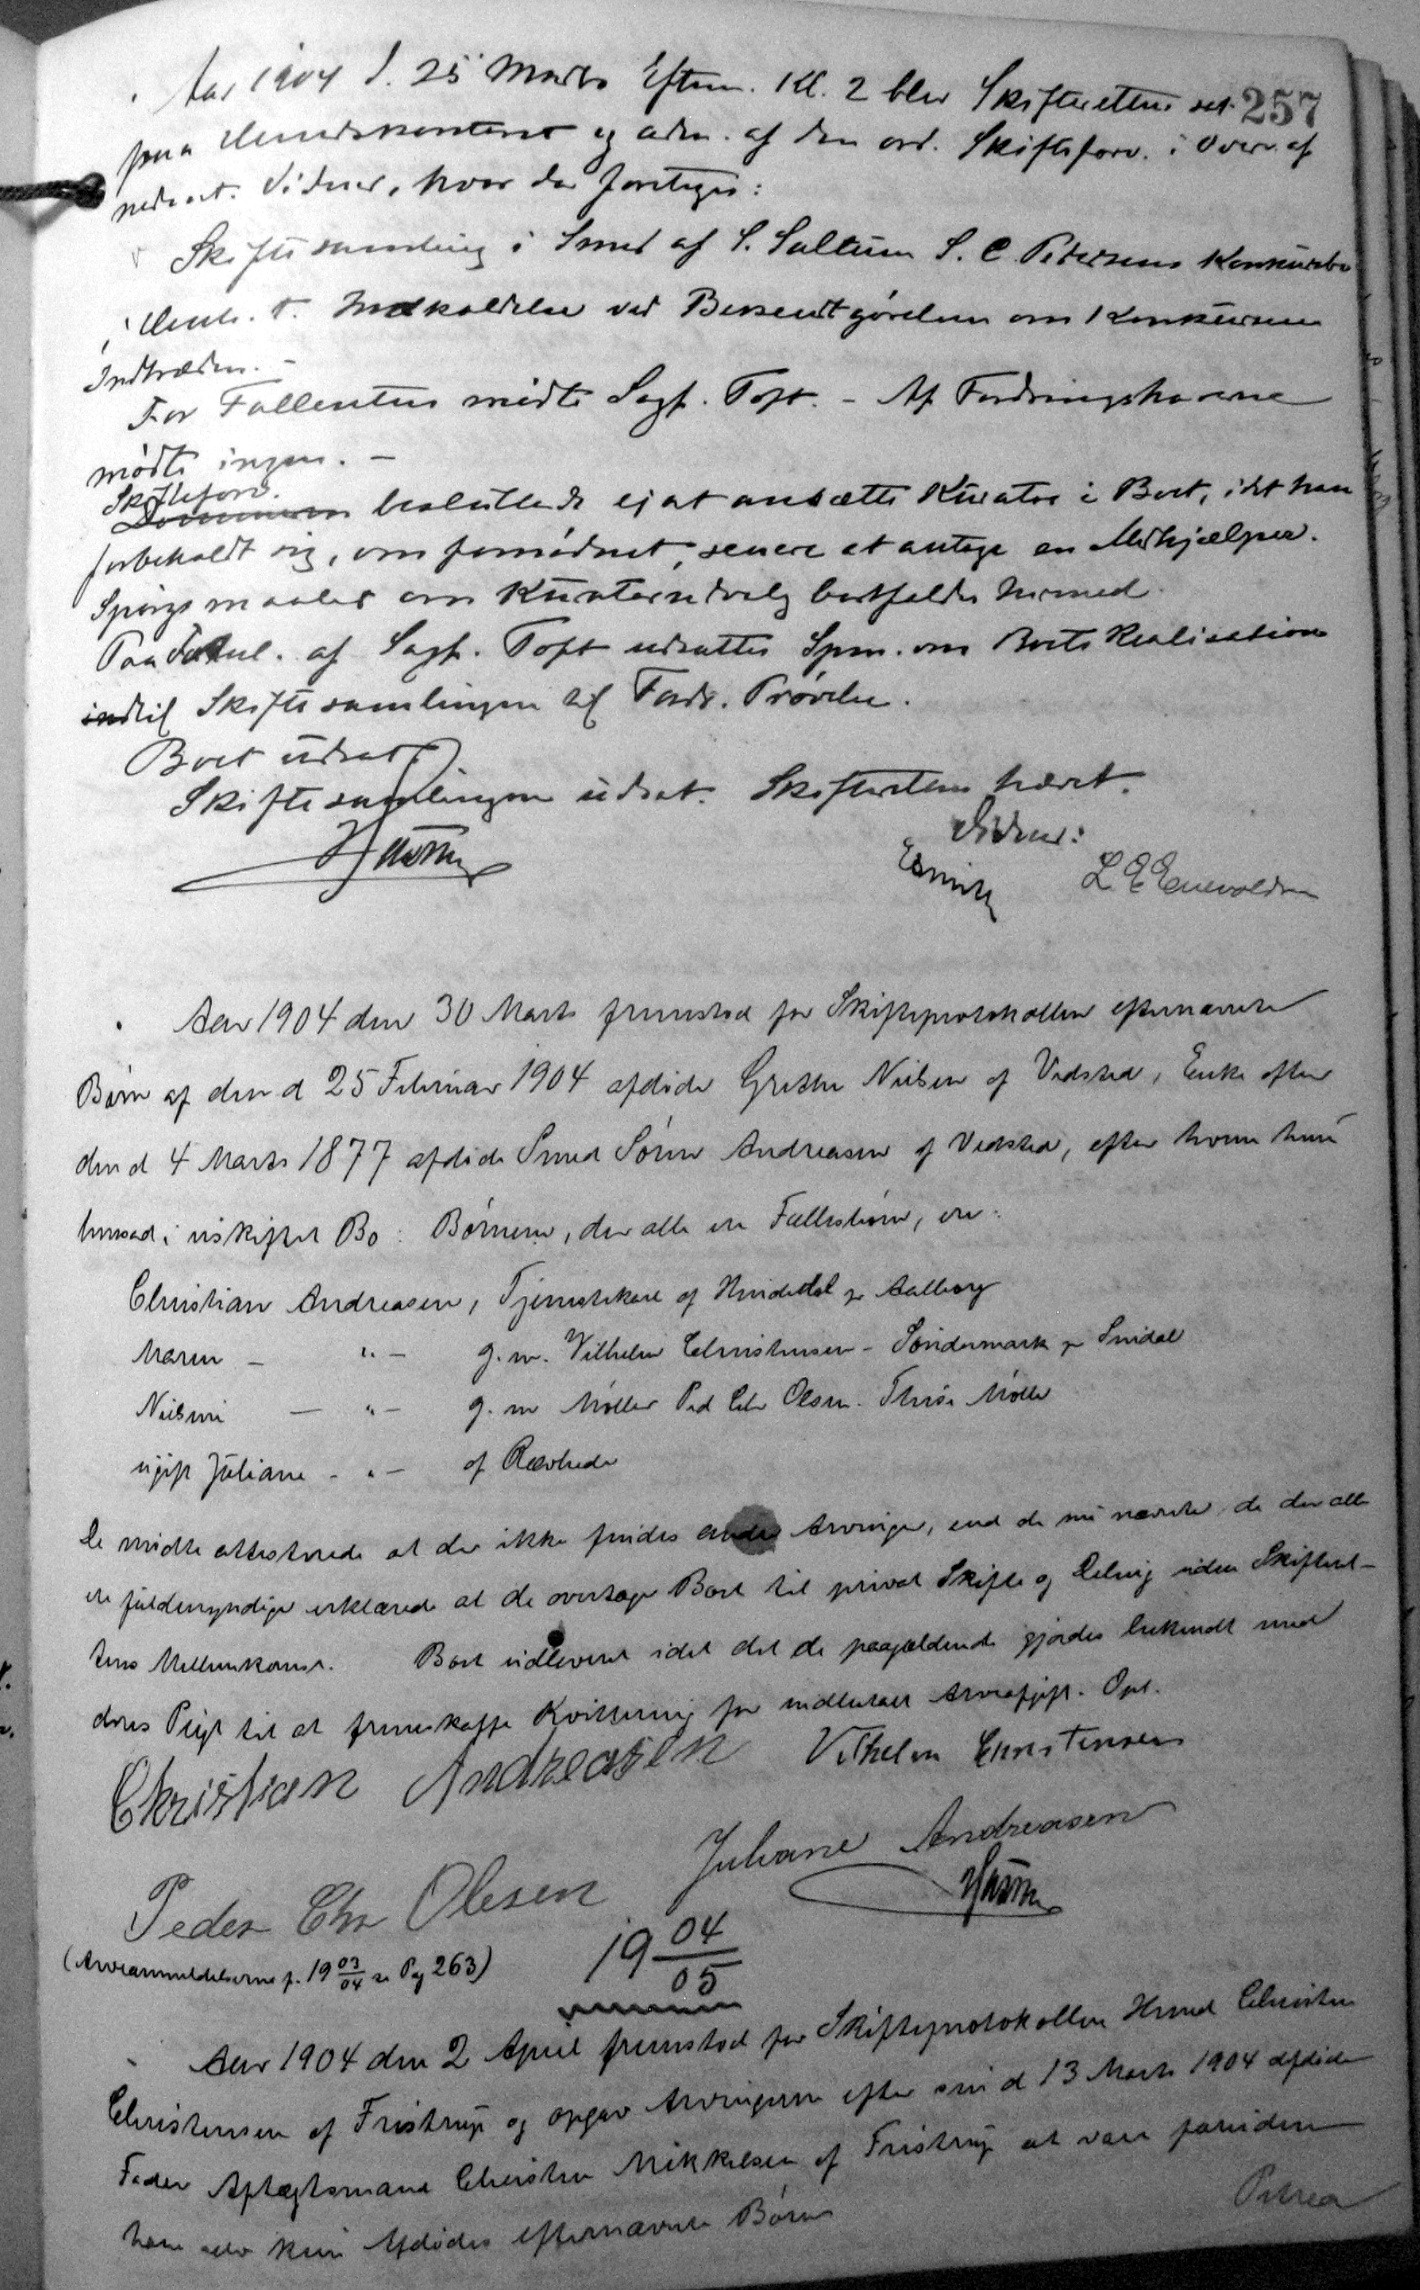 257
Aar 1904 d. 25 Marts Efterm. Kl. 2 blev Skifteretten sat
paa Herredskontoret og adm. af den ord. Skifteforv. i Overv. af
nedennt. Vidner, hvor da foretoges:
Skiftesamling i Smed af S. Saltum S. C. Petersens Konkursbo
i Henh. t. Indkaldelse ved Bekendtgørelsen om Konkursens
Indtræden. -
For Fallenten mødte Sagf. Toft. - Af Fordringshaverne
mødte ingen. -
Skifteforv.
besluttede ej at ansætte Kurator i Boet, idet han
forbeholdt sig, om fornødent, senere at antage en Medhjælper.
Spørgsmaalet om Kuratorudvalg bortfaldt hermed.
Paa Forl. af Sagf. Toft udsattes Spm. om Boets Realisation
indtil Skiftesamlingen til Fordr. Prøvelse.
Boet udsat.
Skiftesamlingen udsat. Skifteretten hævet.
Vidner:
L. E. Enevoldsen
Aar 1904 den 30 Marts fremstod for Skifteprotokollen efternævnte
Børn af den d 25 Februar 1904 afdøde Grethe Nielsen af Vedsted, Enke efter
den d 4 Marts 1877 afdøde Smed Søren Andreasen af Vedsted, efter hvem hun
hensad i uskiftet Bo: Børnene, der alle ere Fællesbørn, ere:
Christian Andreasen, Tjenestekarl af Hvidetal pr Aalborg
Maren - " - g. m. Vilhelm Christensen - Søndermark pr Suldal
Nielsine - " - g. m Møller Ped Chr Olsen. Thise Mølle
ugift Juliane - " - af Rævhede
De mødte attesterede at der ikke findes andre Arvinger, end de nu nævnte, de der alle
ere fuldmyndige erklærede at de overtage Boet til privat Skifte og Deling uden Skifteret-
tens Mellemkomst. Boet udleveret idet det de paagældende gjordes bekendt med
deres Pligt til at fremskaffe Kvittering for indbetalt Arveafgift. Opl.
Christian Andreasen Vilhelm Christensen
Juliane Andreasen
Peder Chr Olesen
(Arveanmeldelserne f. 19 03/04 se Pag 263)
19 04/05
Aar 1904 den 2 April fremstod for Skifteprotokollen Hmd Christen
Christensen af Fristrup og opgav Arvingerne efter sin d 13 Marts 1904 afdøde
Fader Aftægtsmand Christen Mikkelsen af Fristrup at være foruden
ham selv kun Afdødes efternævnte Børn
Petrea